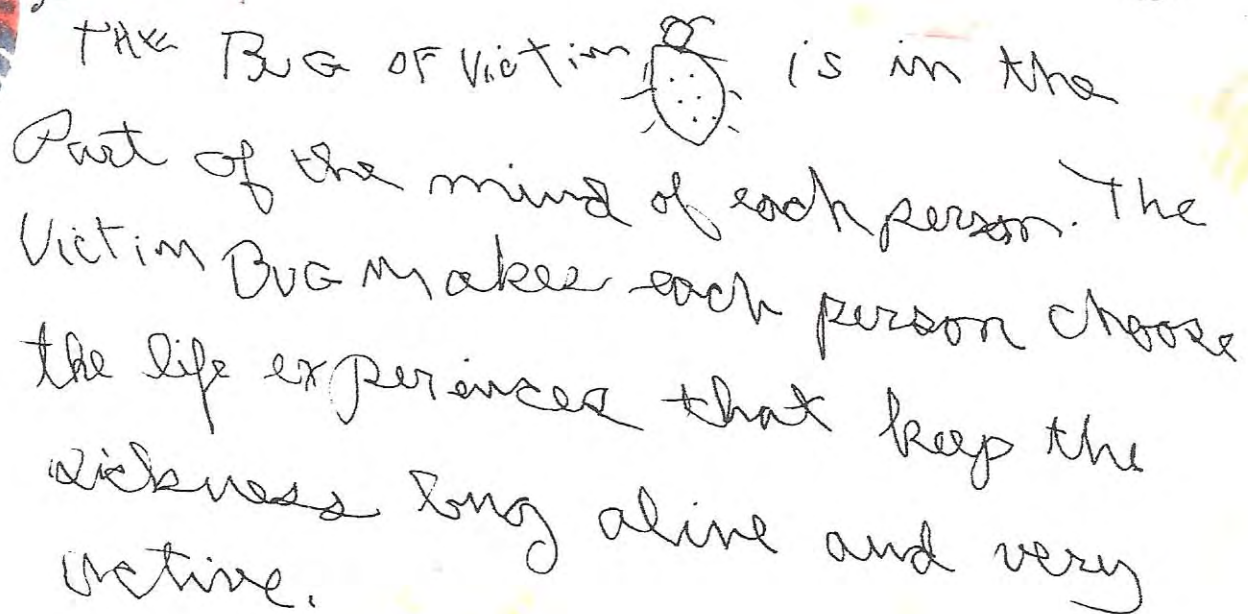 THE BUG OF Victim is in the
Part of the mind of each person. The
Victim BUG Makes each person choose
the life experinces that keep the
sickness long alive and very
active.